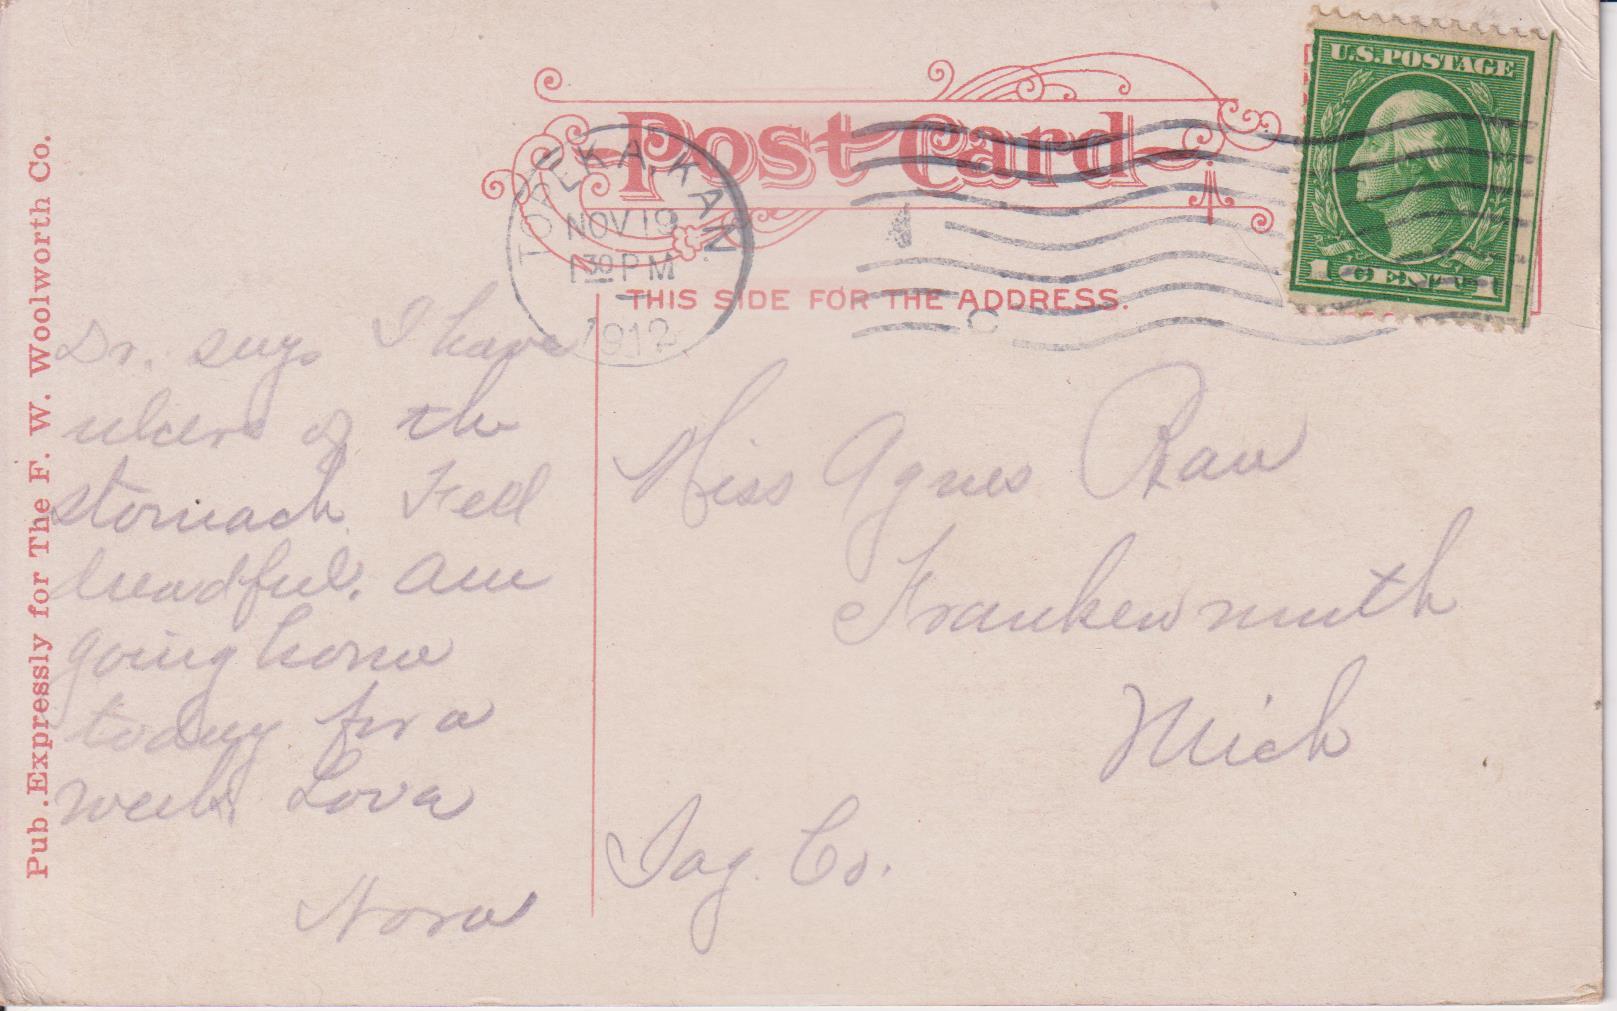 Post Card
THIS SIDE FOR THE ADDRESS.
U.S. POSTAGE
1 CENT 1
TOPEKA, KAN.
NOV 19
1 30 PM
1912
1
C
Pub. Expressly for The F. W. Woolworth Co.
Dr. says I have
ulcers of the
stomach. Feel
dreadful. Am
going home
today for a
week. Love
Nora
Miss Agnes Rau
Frankenmuth
Mich
Sag. Co.